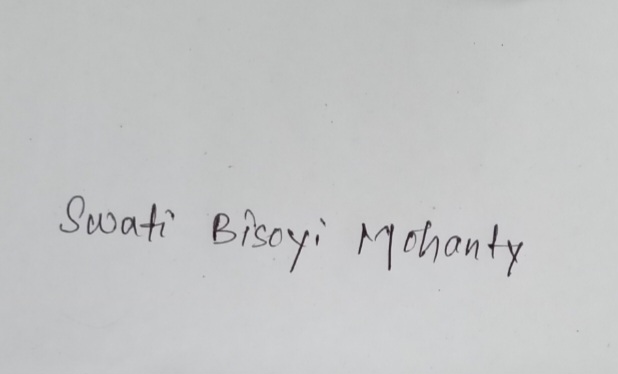 Swati Bisoyi Mohanty